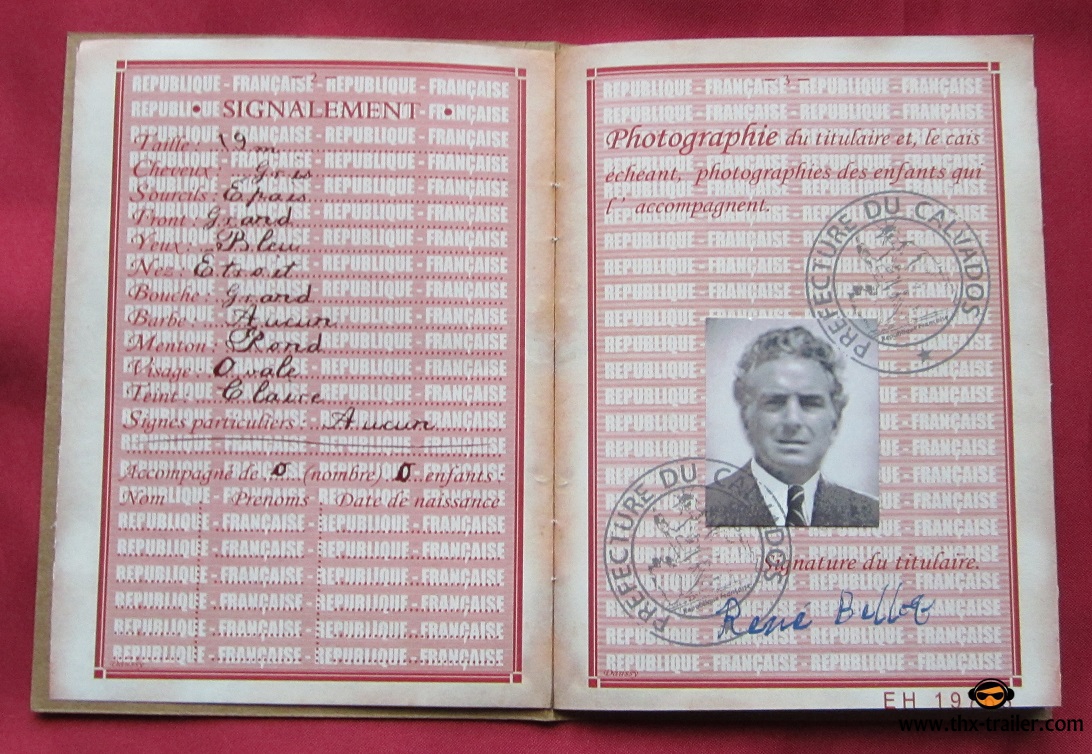 - 2 -
• SIGNALEMENT •
Taille : 19m
Cheveux : Gris
Sourcils : Epais
Front : Grand
Yeux : Bleu
Nez : Etroit
Bouche : Grand
Barbe : Aucun
Menton : Rond
Visage : Ovale
Teint : Claire
Signes particuliers : Aucun
Accompagné de 0 (nombre) 0 enfants :
Nom Prenoms Date de naissance
REPUBLIQUE - FRANÇAISE - REPUBLIQUE - FRANÇAISE
- 3 -
Photographie du titulaire et, le cais
echeant, photographies des enfants qui
l' accompagnent.
PREFECTURE DU CALVADOS
PREFECTURE DU CALVADOS
Signature du titulaire.
René Belloq
REPUBLIQUE - FRANÇAISE - REPUBLIQUE - FRANÇAISE
EH 19
www.thx-trailer.com